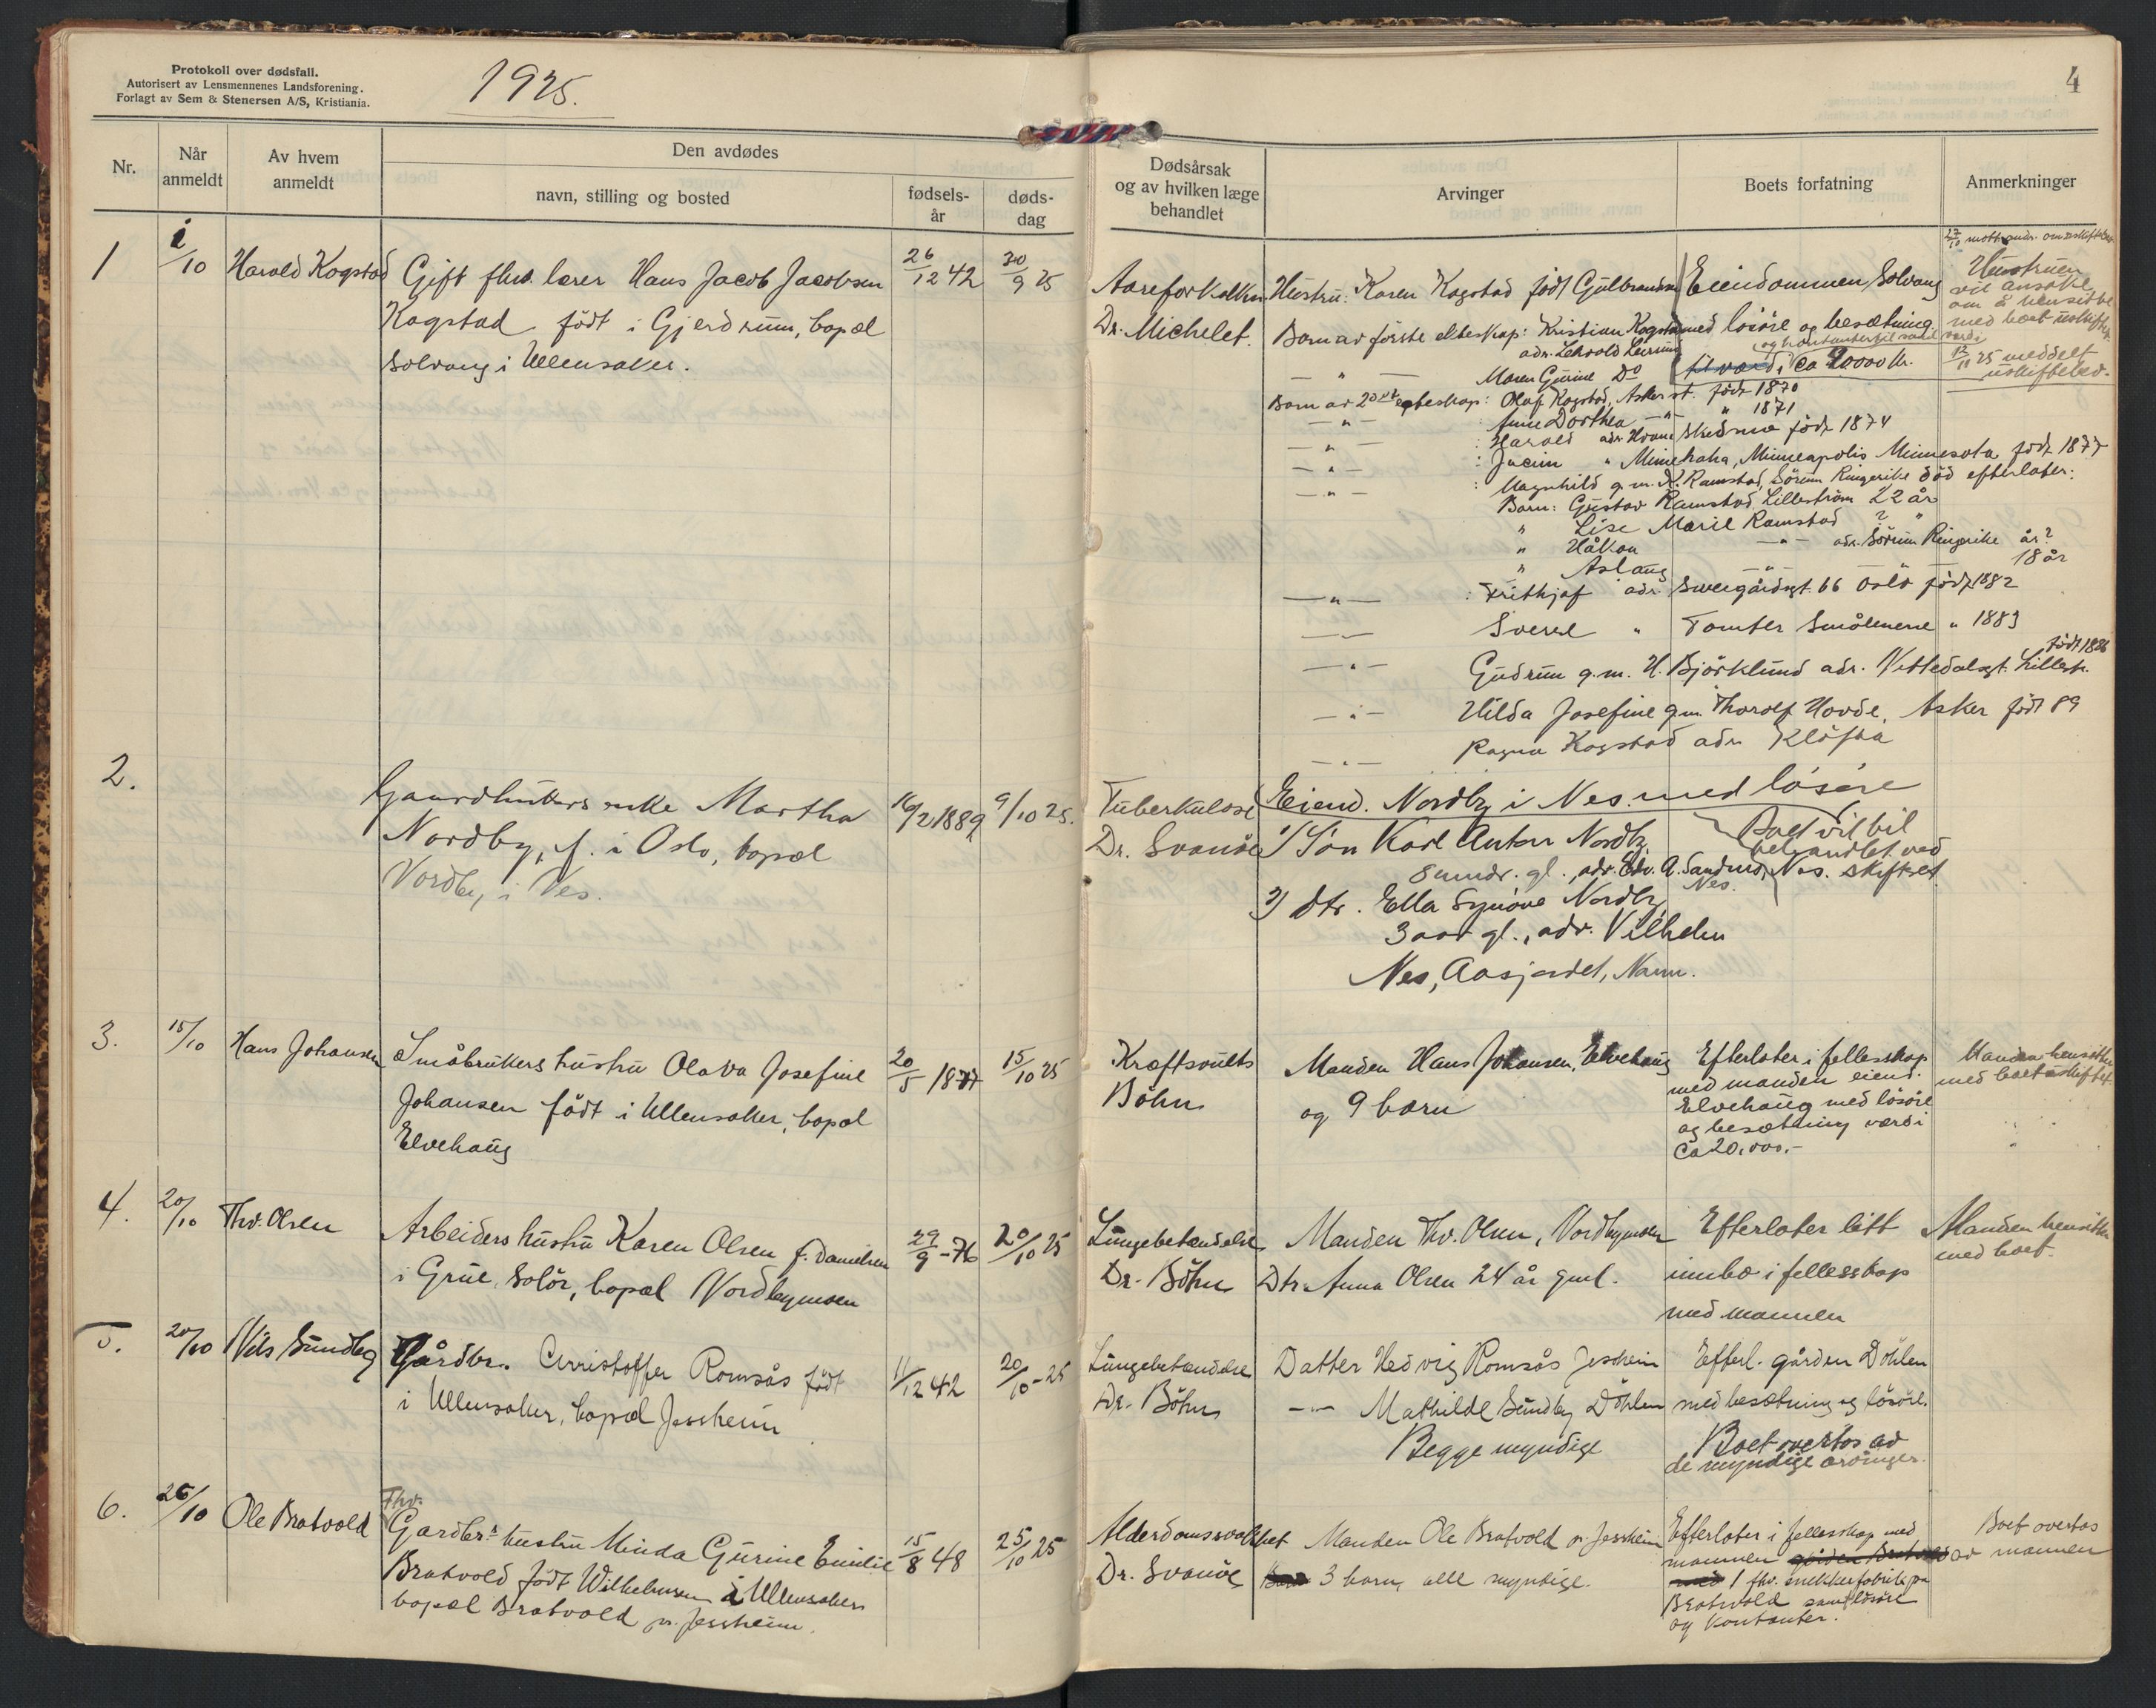 Protokoll over dødsfall.
Autorisert av Lensmennenes Landsforening.
Forlagt av Sem & Stenersen A/S, Kristiania.
1925.
4
Nr.
Når
anmeldt
Av hvem
anmeldt
Den avdødes
navn, stilling og bosted
fødsels-
år
døds-
dag
Dødsårsak
og av hvilken læge
behandlet
Arvinger
Boets forfatning
Anmerkninger
1
1/10
Harald Kogstad
Gift fhv. lærer Hans Jacob Jacobsen
Kogstad født i Gjerdrum, bopæl
Solvang i Ullensaker.
26/12 42
30/9 25
Aareforkalkn.
Dr. Michelet.
Hustru: Karen Kogstad født Gulbrandsen
Barn av første ekteskap: Kristian Kogstad
adr. Lekvold Leirsund
— " — Maren Gurine Do
Barn av 2det egteskap: Olaf Kogstad, Asker st. født 1870
— " — Anne Dorthea — " — " 1871
— " — : Harald adr. Hvam Skedsmo født 1874
— " — : Jucim " Minnehaha, Minneapolis Minnesota født 1877
— " — : Magnhild g.m. K. Ramstad, Sørum Ringerike død efterlater:
Barn: Gustav Ramstad Lillestrøm 22 år
" Lise Marie Ramstad ? "
" Håkon — " — adr. Sørum Ringerike år?
" Aslaug — " — 18 år
— " — : Frithjof adr. Sweigårdsgt. 66 Oslo født 1882
— " — Sverre " Tomter Smålenene " 1883
— " — Gudrun g.m. H. Bjørklund adr. Vittedalsgt. Lillestr.
født 1886
— " — Hilda Josefine g.m. Thorolf Hovde, Asker født 89
— " — Ragna Kogstad adr. Kløfta
Eiendommen Solvang
med løsøre og besætning.
og kontanter til samlet verdi
til værdi ca 20000 kr.
27/10 mott. andr. om uskiftebev.
Hustruen
vil ansøke
om å hensidde
med boet uskiftet.
12/10 25 meddelt
uskiftebev.
2.
Gaardbrukers enke Martha
Nordby, f. i Oslo, bopæl
Nordby, i Nes.
16/2 1889
9/10 25.
Tuberkulose
Dr. Svanøe
Eiend. Nordby i Nes med løsøre
1/ Søn Karl Anton Nordby.
8 mndr. gl., adr. Edv. A. Sandnes,
Nes.
2/ dtr. Ella Synøve Nordby
3 aar gl., adr. Vilhelm
Nes, Aasjordet, Nann.
Boet vil bli
behandlet ved
Nes. skifteret
3.
15/10
Hans Johansen
Småbrukers hustru Olava Josefine
Johansen født i Ullensaker, bopæl
Elvehaug
20/5 1877
15/10 25
Kræftsvulst
Bøhn
Manden Hans Johansen, Elvehaug
og 9 barn
Efterlater i fellesskap
med manden eiend.
Elvehaug med løsøre
og besætning værdi
Ca 20.000.-
Manden hensitter
med boet uskiftet.
4.
20/10
Thv. Olsen
Arbeiders hustru Karen Olsen f. Danielsen
i Grue, Solør, bopæl Nordbymoen
29/9 - 76
20/10 25
Lungebetændelse
Dr. Bøhn
Manden Thv. Olsen, Nordbymoen
Dtr. Anna Olsen 24 år gml.
Efterlater litt
innbo i fellesskap
med mannen
Manden hensitter
med boet.
5.
20/10
Nils Sundby
Gårdbr. Christoffer Romsås født
i Ullensaker, bopæl Jessheim
11/12 42
20/10 - 25
Lungebetændelse
Dr. Bøhn
Datter Hedvig Romsås Jessheim
— " — Mathilde Sundby Døhlen
Begge myndige
Efterl. gården Døhlen
med besætning og løsøre.
Boet overtas av
de myndige arvinger.
6.
26/10
Ole Bratvold
Fhv.
Gardbr's hustru Minda Gurine Emilie
Bratvold født Wilhelmsen i Ullensaker
bopæl Bratvold pr. Jessheim.
15/8 48
25/10 25
Alderdomssvakhet
Dr. Svanøe
Manden Ole Bratvold pr. Jessheim
3 barn, alle myndige.
Efterlater i fellesskap med
mannen gården Bratvold
med 1 fhv. snekkerfabrik på
Bratvold samt løsøre
og kontanter.
Boet overtas
av mannen